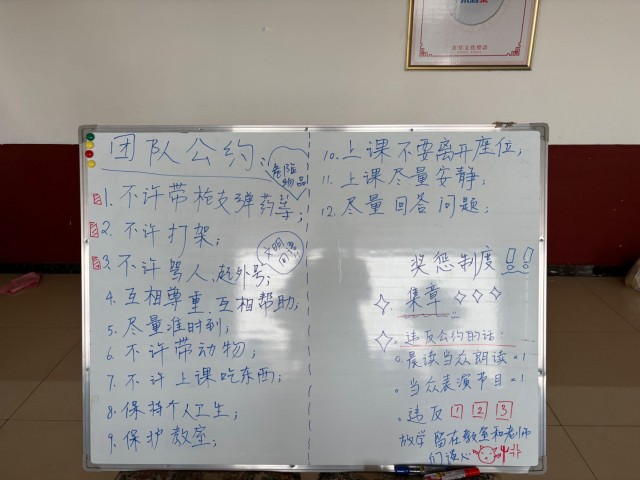 团队公约:
危险
物品
1. 不许带枪支弹药等;
2. 不许打架;
3. 不许骂人、起外号;
文明
4. 互相尊重、互相帮助;
5. 尽量准时到;
6. 不许带动物;
7. 不许上课吃东西;
8. 保持个人卫生;
9. 保护教室;
10. 上课不要离开座位;
11. 上课尽量安静;
12. 尽量回答问题;
奖惩制度!!
集章
违反公约的话:
晨读当众朗读*1
当众表演节目*1
违反 1 2 3
放学留在教室和老师
们谈心